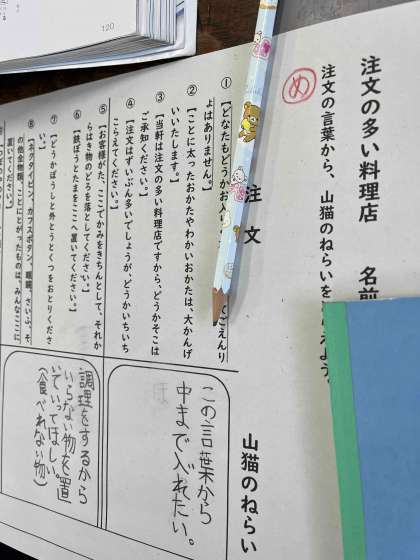 注文の多い料理店 名前
め
注文の言葉から、山猫のねらいを
注文
山猫のねらい
①【どなたもどうかお入
てごえんり
よはありません。】
②【ことに太ったおかたやわかいおかたは、大かんげ
いいたします。】
③【当軒は注文の多い料理店ですから、どうかそこは
ご承知ください。】
④【注文はずいぶん多いでしょうが、どうかいちいち
こらえてください。】
⑤【お客様がた、ここでかみをきちんとして、それか
らはき物のどろを落としてください。】
⑥【鉄ぽうとたまをここへ置いてください。】
⑦【どうかぼうしと外とうとくつをおとりくださ
い。】
⑧【ネクタイピン、カフスボタン、眼鏡、さいふ、そ
の他金物類、ことにとがったものは、みんなここに
置いてください。】
この言葉から
中まで入れたい。
調理をするから
いらない物を置
いていってほしい。
(食べれない物)
120